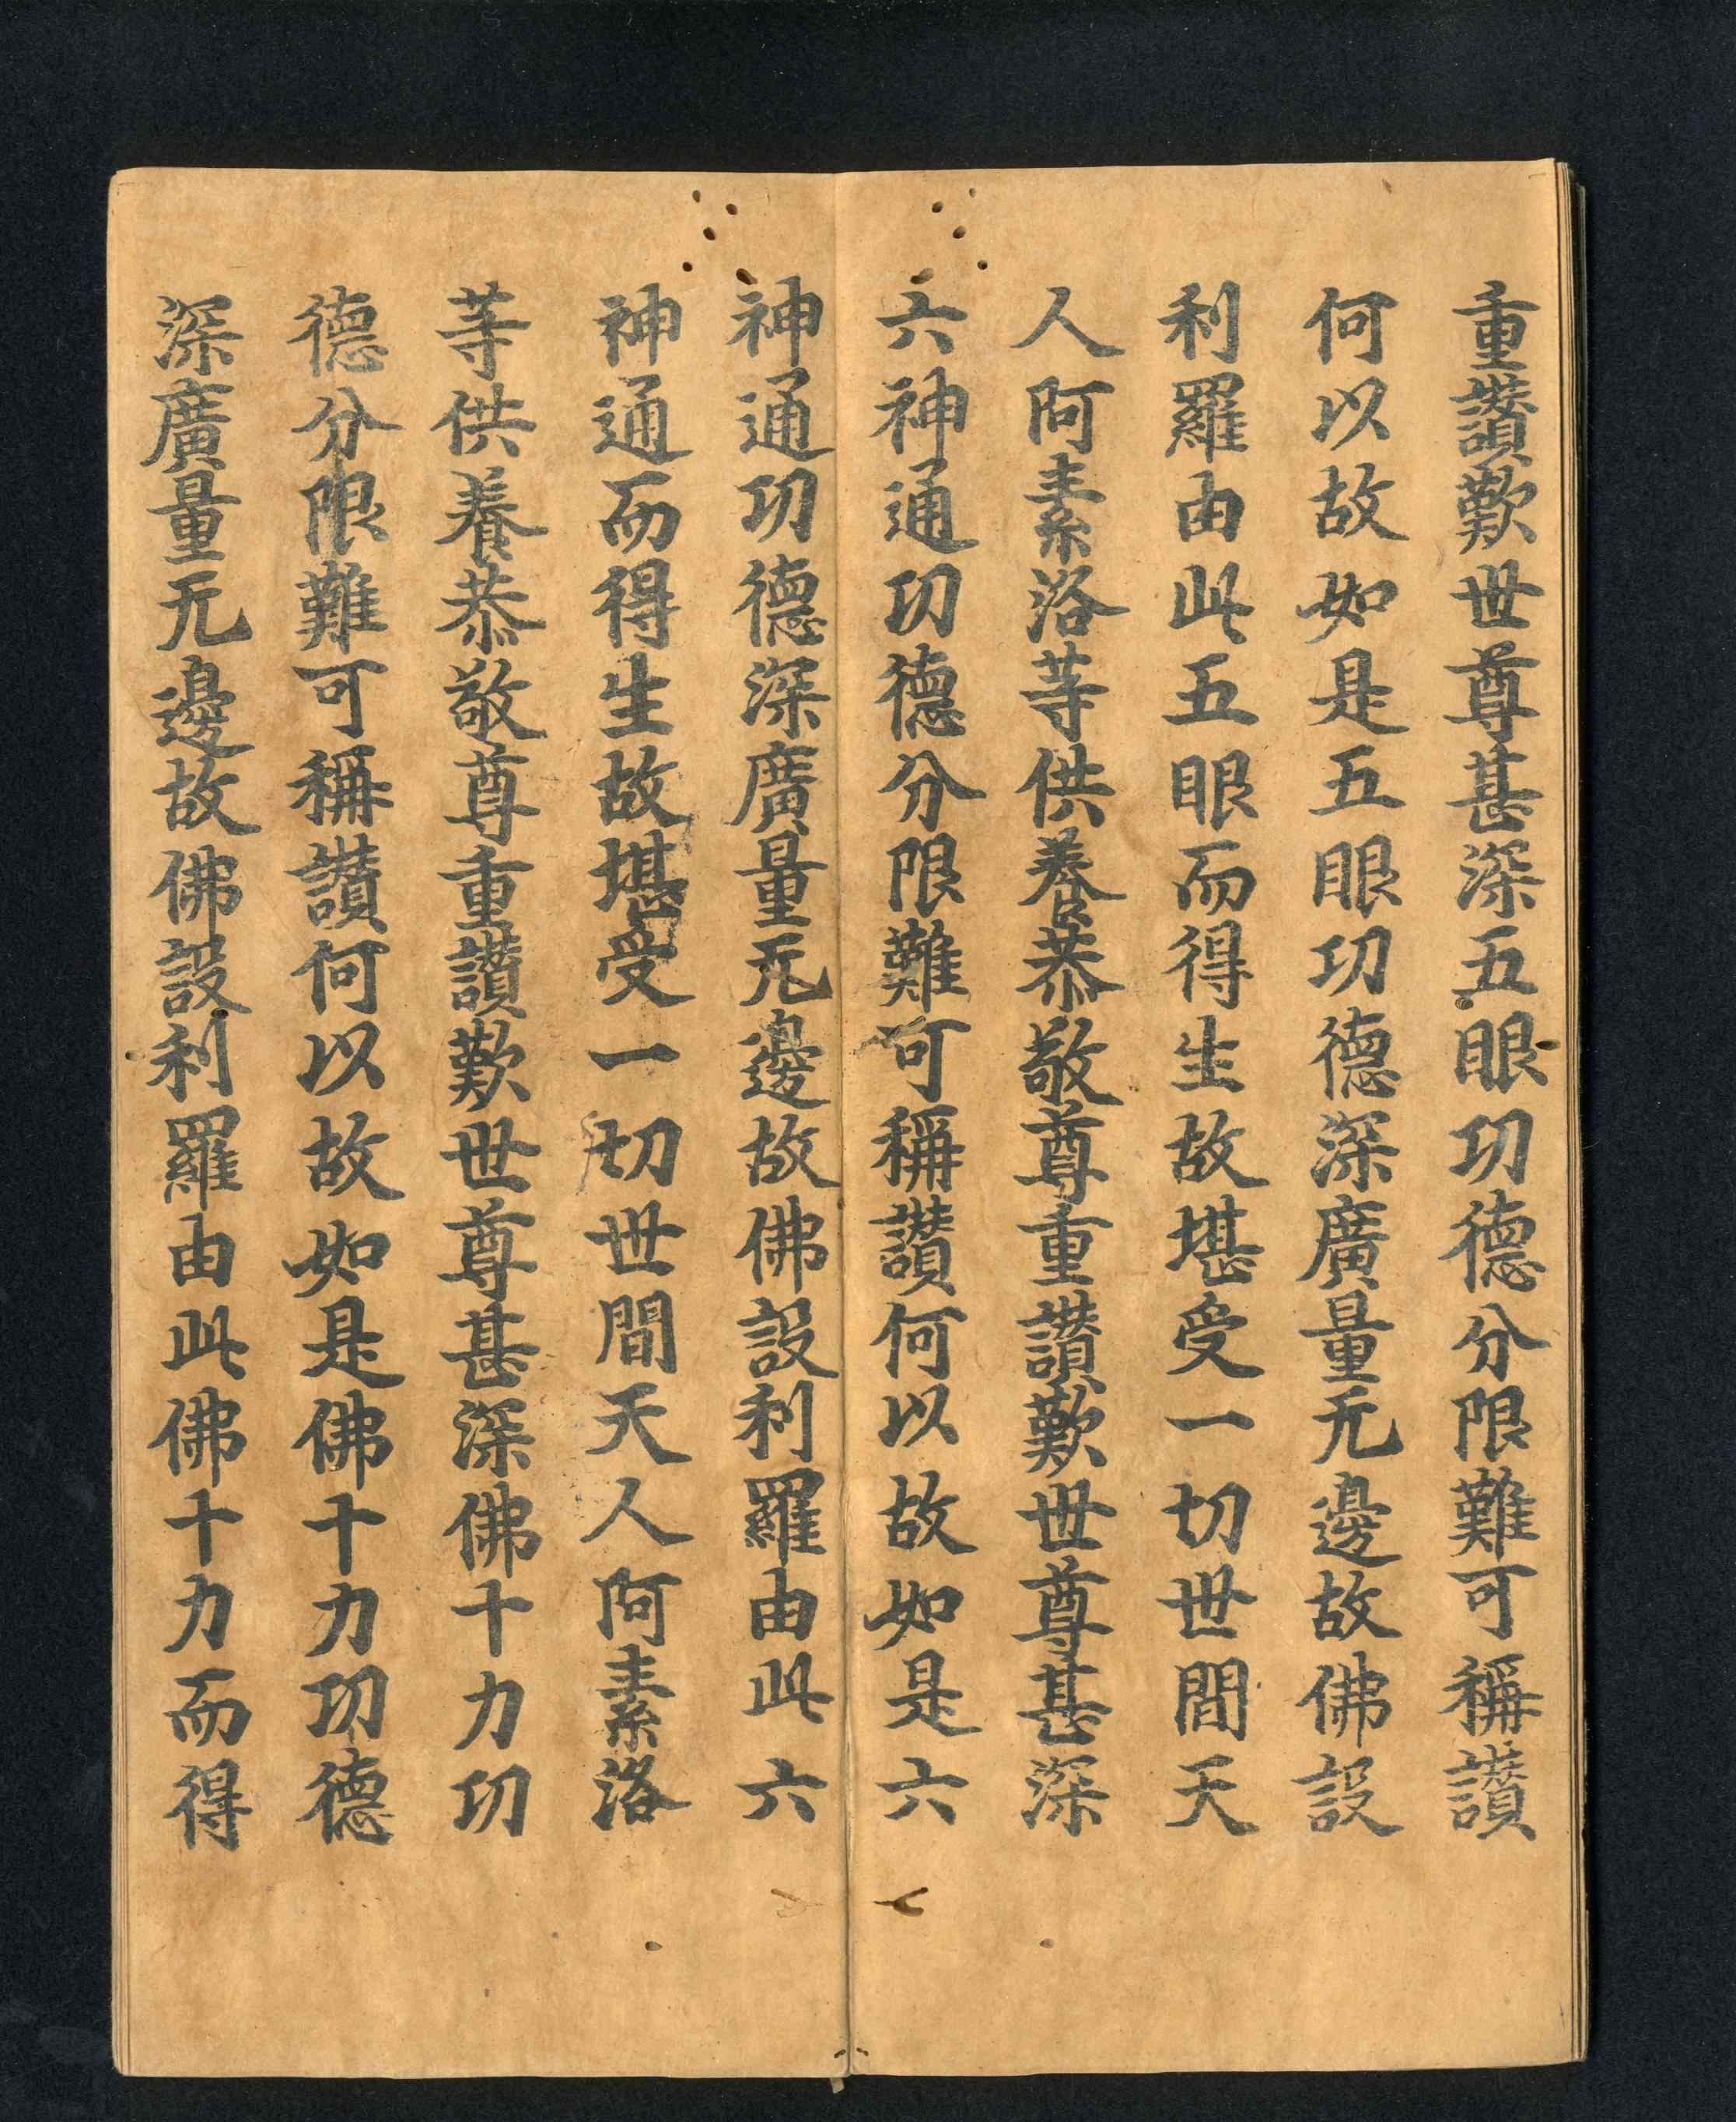 重讃歎世尊甚深五眼功德分限難可稱讃
何以故如是五眼功德深廣量无邊故佛設
利羅由此五眼而得生故堪受一切世間天
人阿素洛等供養恭敬尊重讃歎世尊甚深
六神通功德分限難可稱讃何以故如是六
神通功德深廣量无邊故佛設利羅由此六
神通而得生故堪受一切世間天人阿素洛
等供養恭敬尊重讃歎世尊甚深佛十力功
德分限難可稱讃何以故如是佛十力功德
深廣量无邊故佛設利羅由此佛十力而得